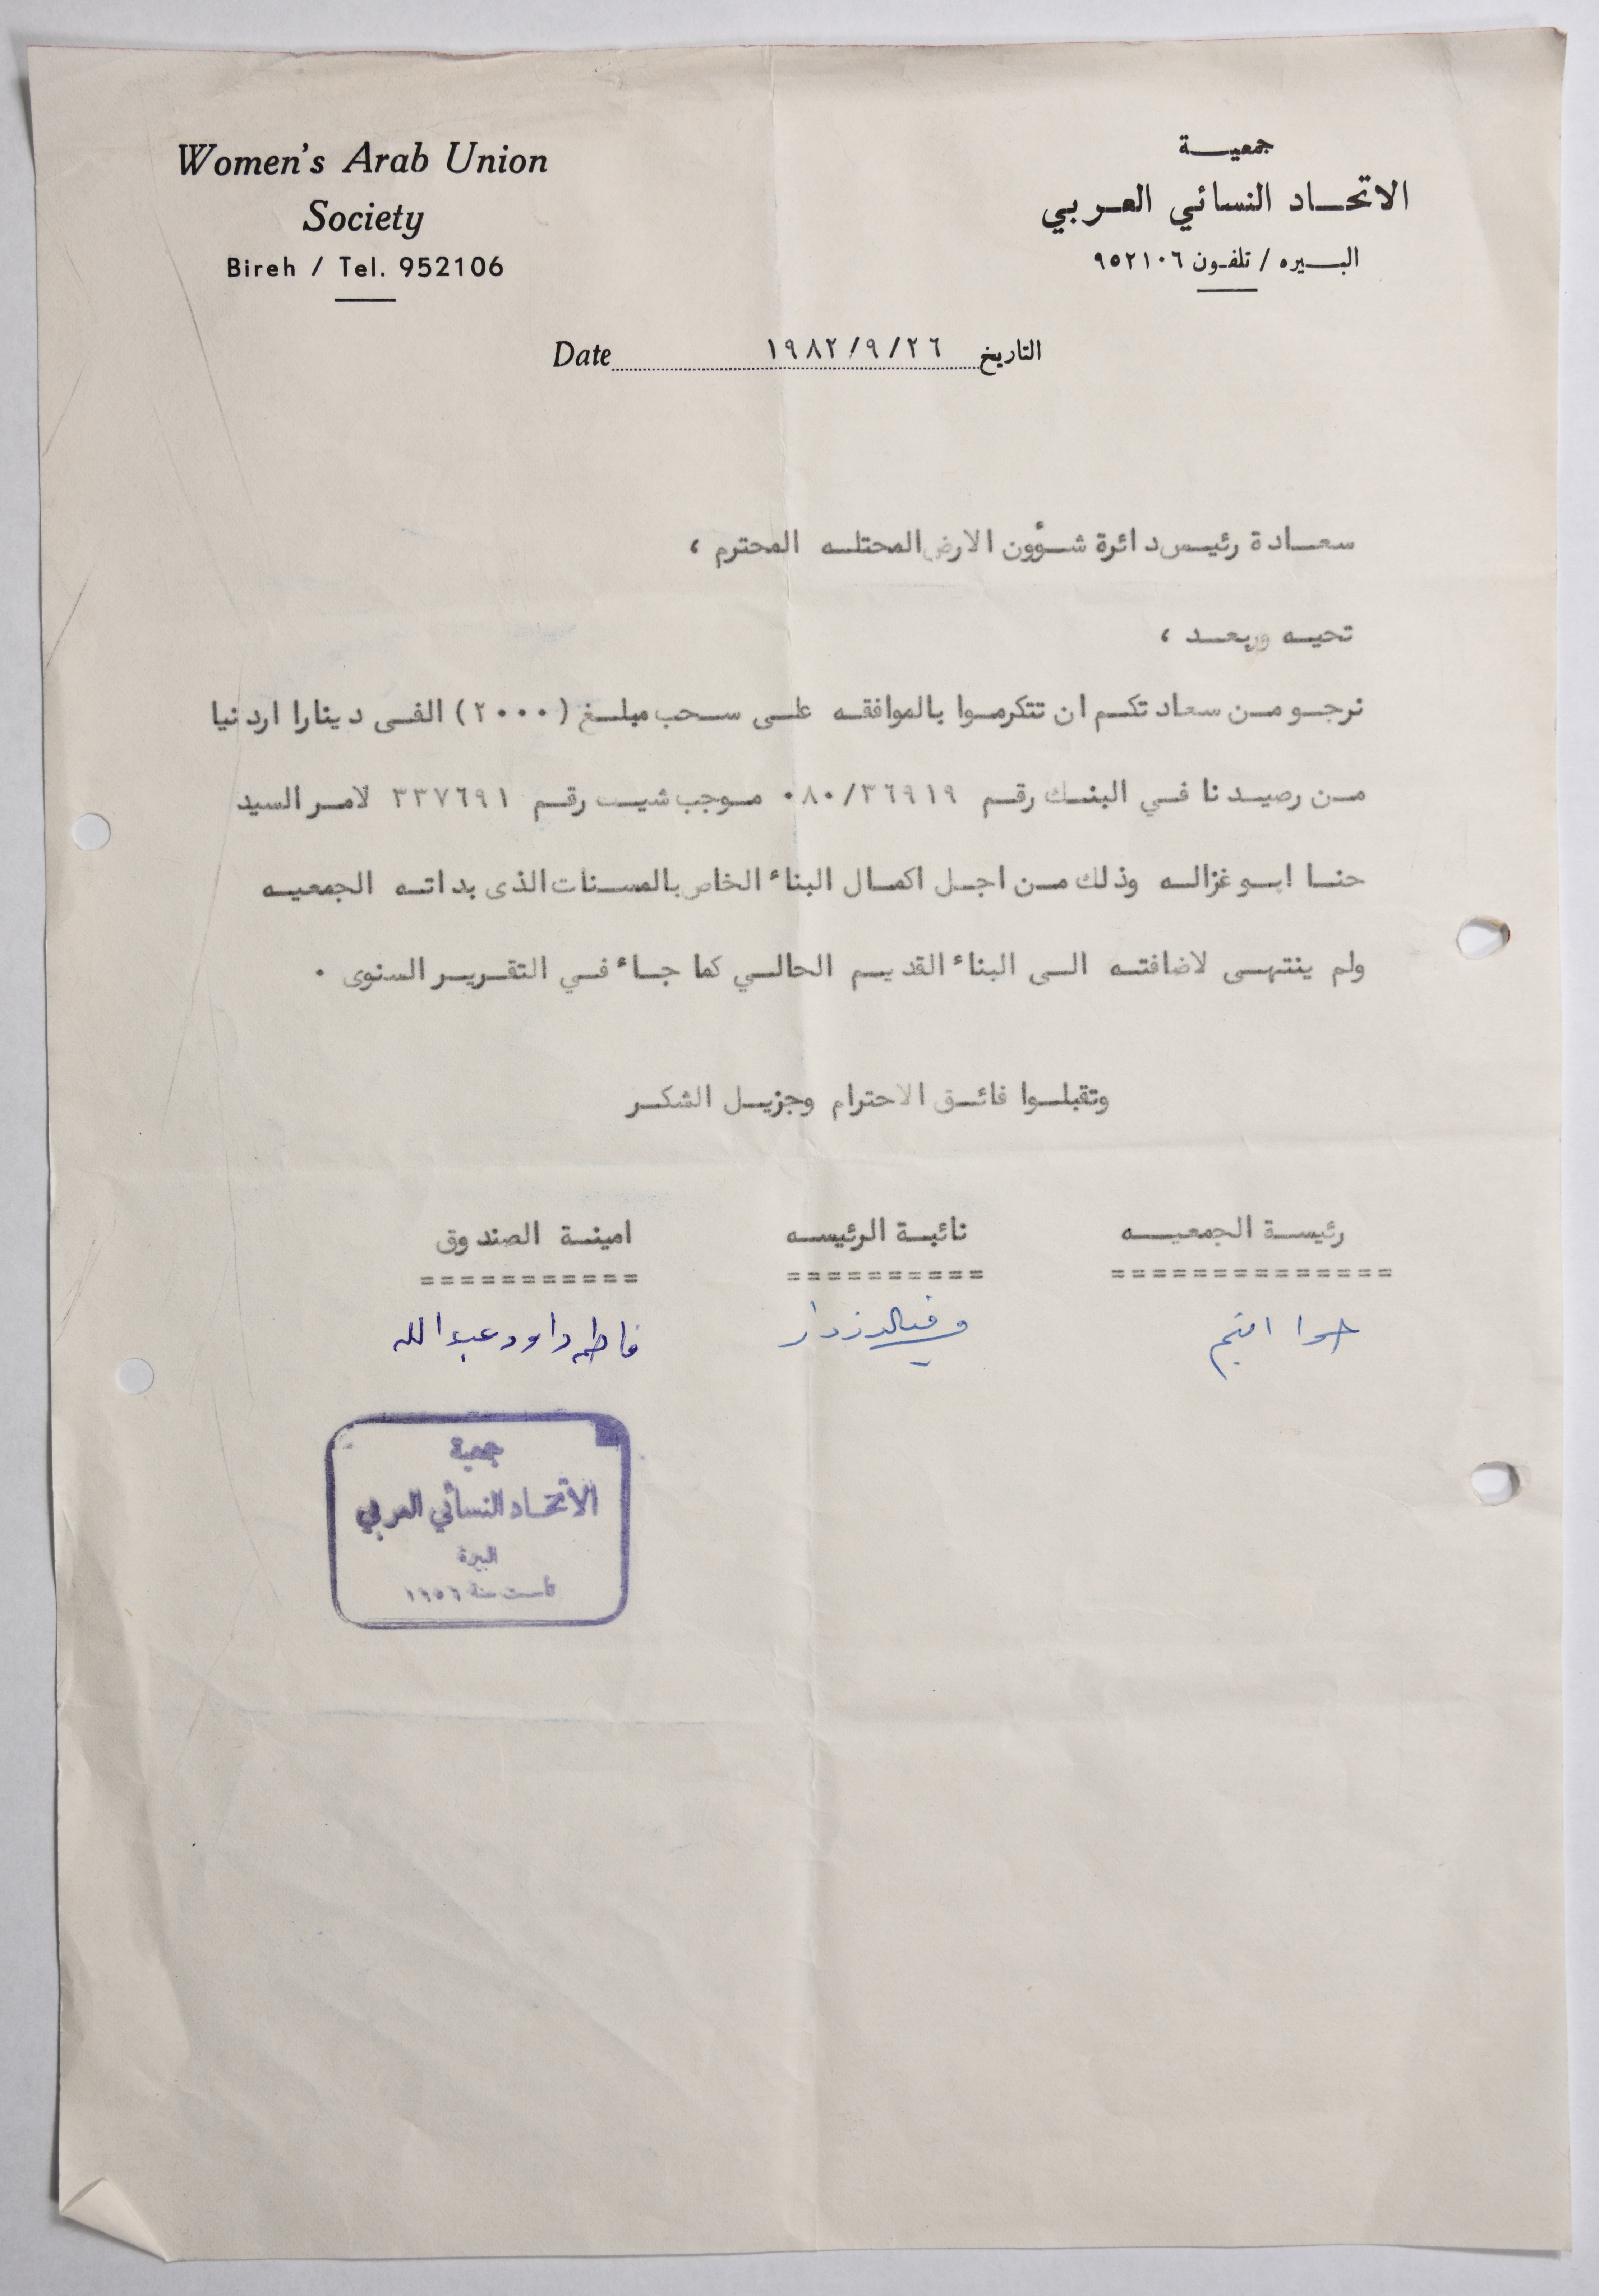 Women's Arab Union
Society
Bireh / Tel. 952106
جمعية
الاتحاد النسائي العربي
البيره / تلفون ٩٥٢١٠٦
Date ١٩٨٢/٩/٢٦ التاريخ
سعادة رئيس دائرة شؤون الارض المحتله المحترم ،
تحيه وبعد ،
نرجو من سعادتكم ان تتكرموا بالموافقه على سحب مبلغ (٢٠٠٠) الفى دينارا اردنيا
من رصيدنا في البنك رقم ٠٨٠/٣٦٩١٩ موجب شيك رقم ٣٣٧٦٩١ لامر السيد
حنا ابو غزاله وذلك من اجل اكمال البناء الخاص بالمسنات الذى بداته الجمعيه
ولم ينتهى لاضافته الى البناء القديم الحالي كما جاء في التقرير السنوى .
وتقبلوا فائق الاحترام وجزيل الشكر
رئيسة الجمعيه نائبة الرئيسه امينة الصندوق
============== ========== ===========
فاطمه داود عبدالله
جمعية
الاتحاد النسائي العربي
البيرة
تأسست سنة ١٩٥٦